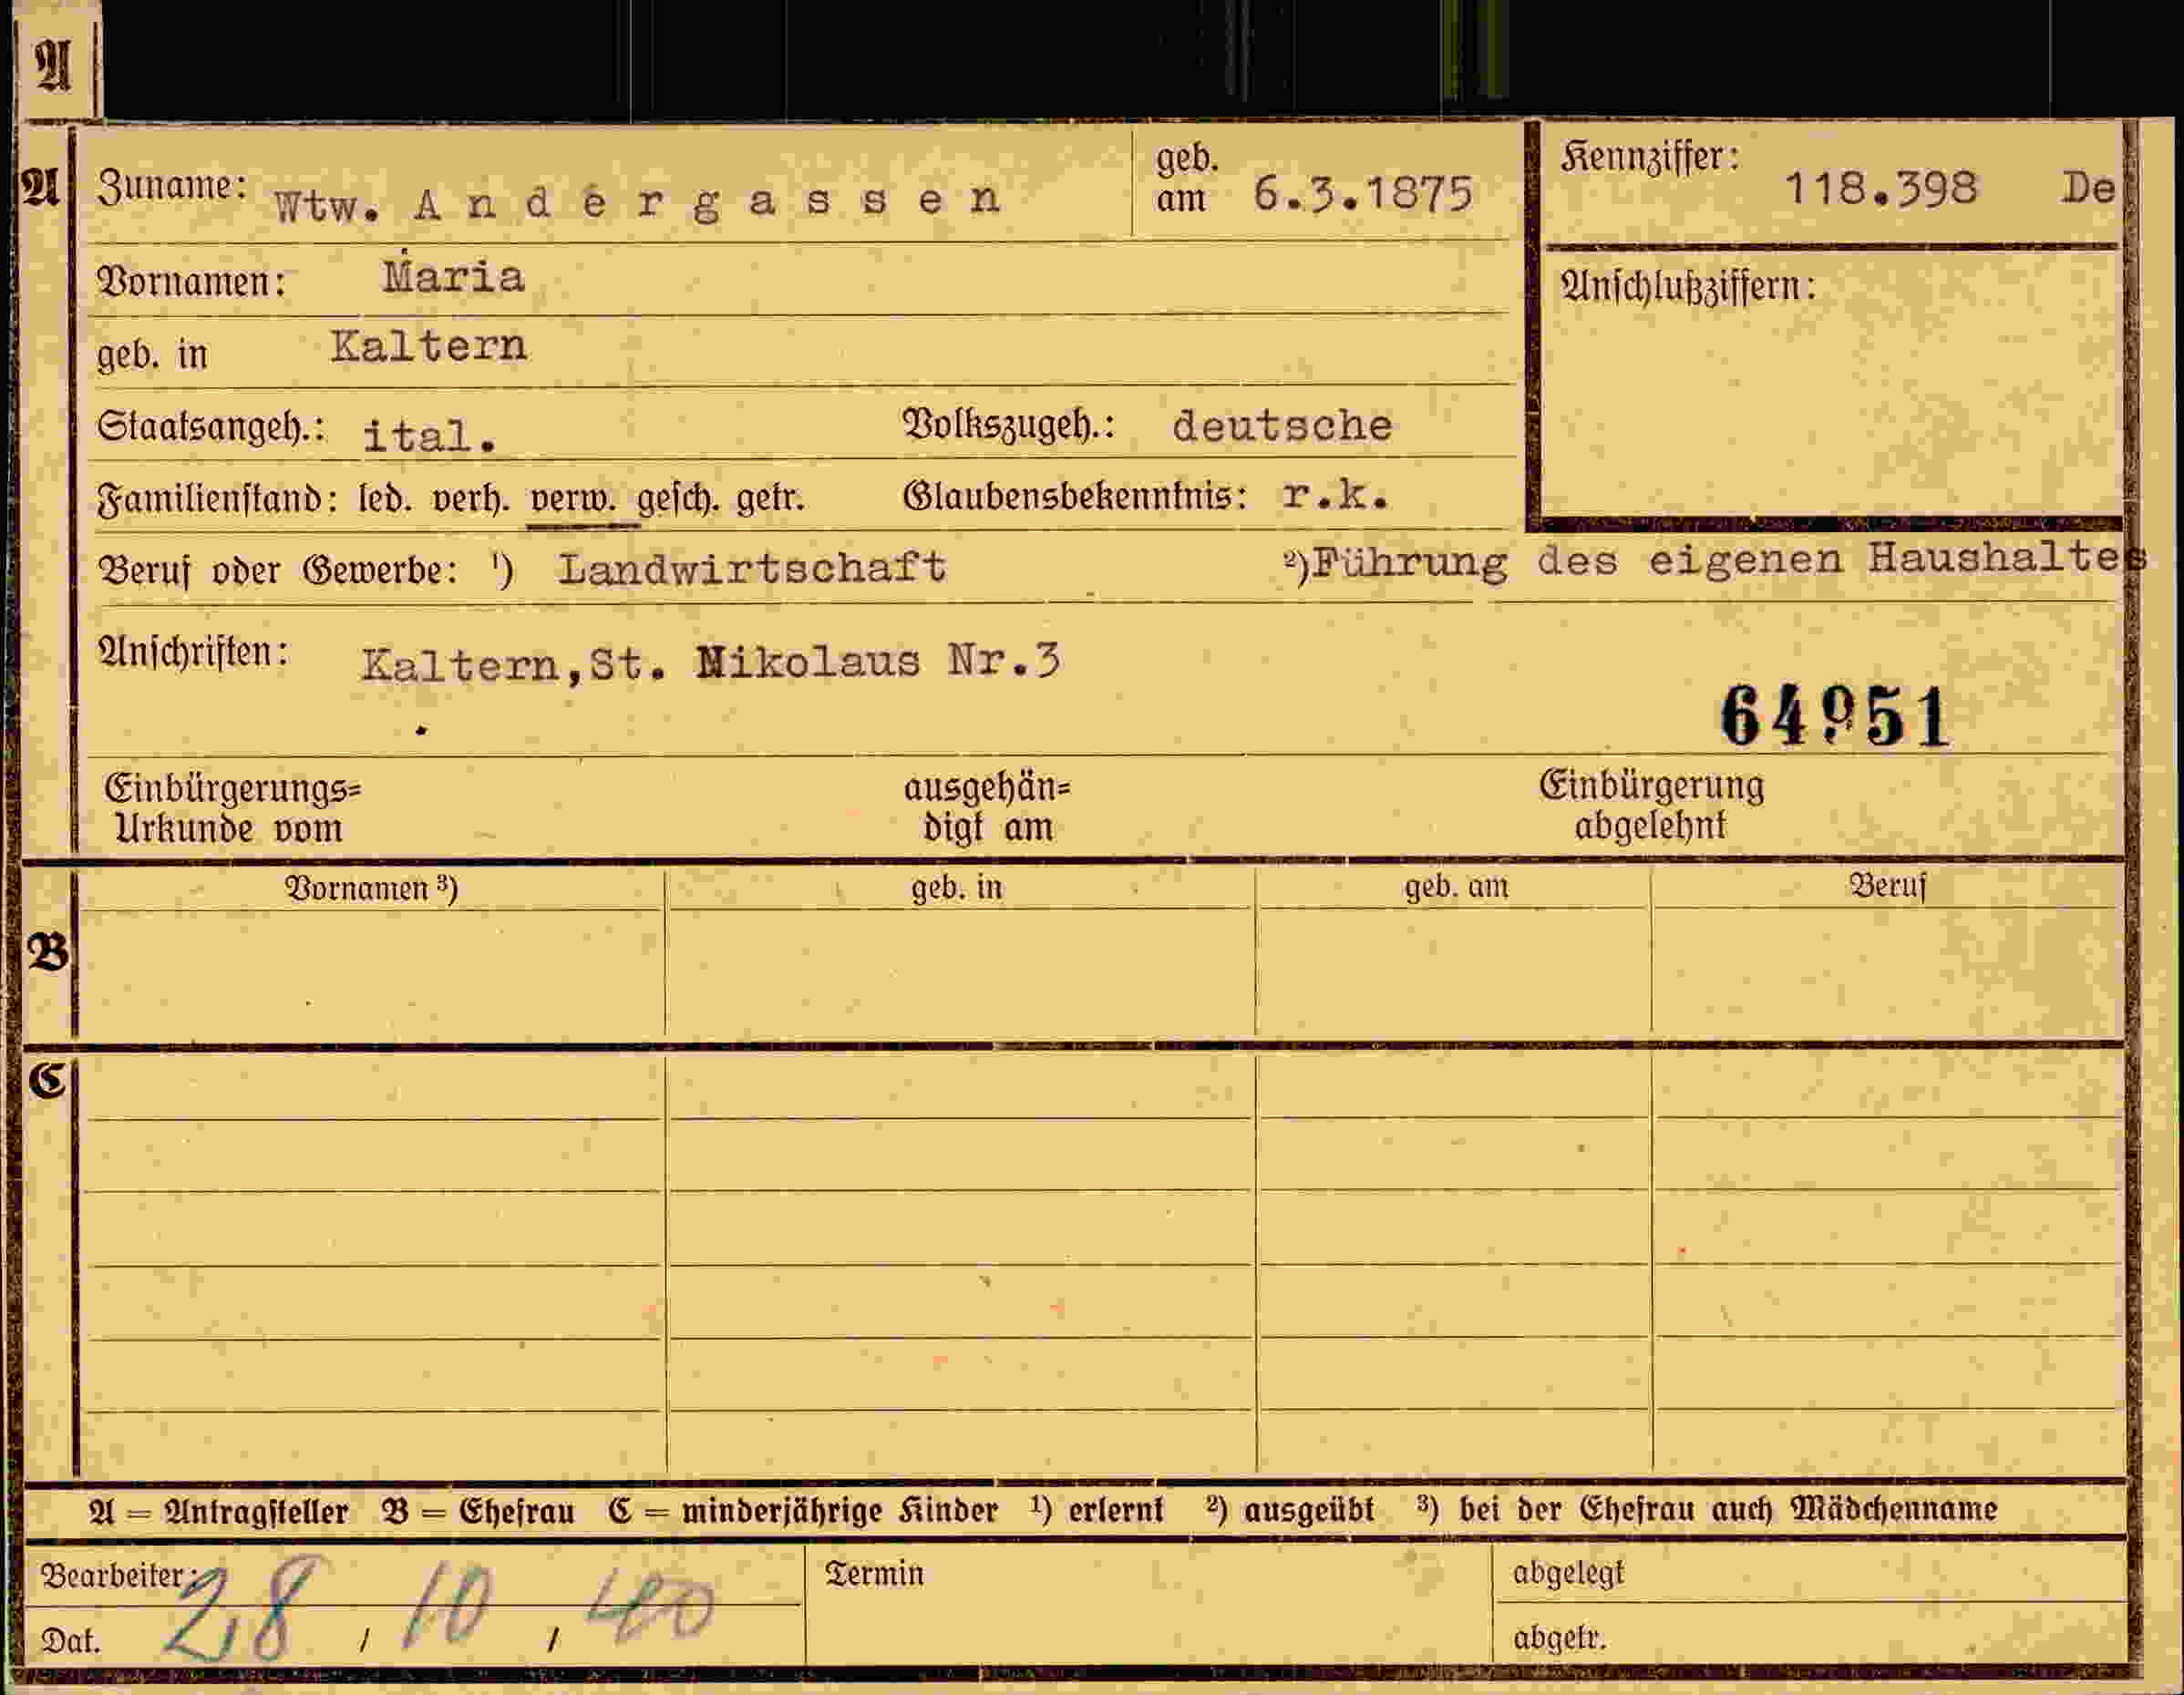 A
A
Zuname: Wtw. Andergassen geb. am 6.3.1875
Kennziffer: 118.398 De
Vornamen: Maria
Anschlußziffern:
geb. in Kaltern
Staatsangeh.: ital. Volkszugeh.: deutsche
Familienstand: led. verh. verw. gesch. getr. Glaubensbekenntnis: r.k.
Beruf oder Gewerbe: ¹) Landwirtschaft ²)Führung des eigenen Haushaltes
Anschriften: Kaltern,St. Nikolaus Nr.3
64951
Einbürgerungs= ausgehän= Einbürgerung
Urkunde vom digt am abgelehnt
B
Vornamen ³) geb. in geb. am Beruf
C
A = Antragsteller B = Ehefrau C = minderjährige Kinder ¹) erlernt ²) ausgeübt ³) bei der Ehefrau auch Mädchenname
Bearbeiter: Termin abgelegt
Dat. 28 / 10 / 40 abgetr.